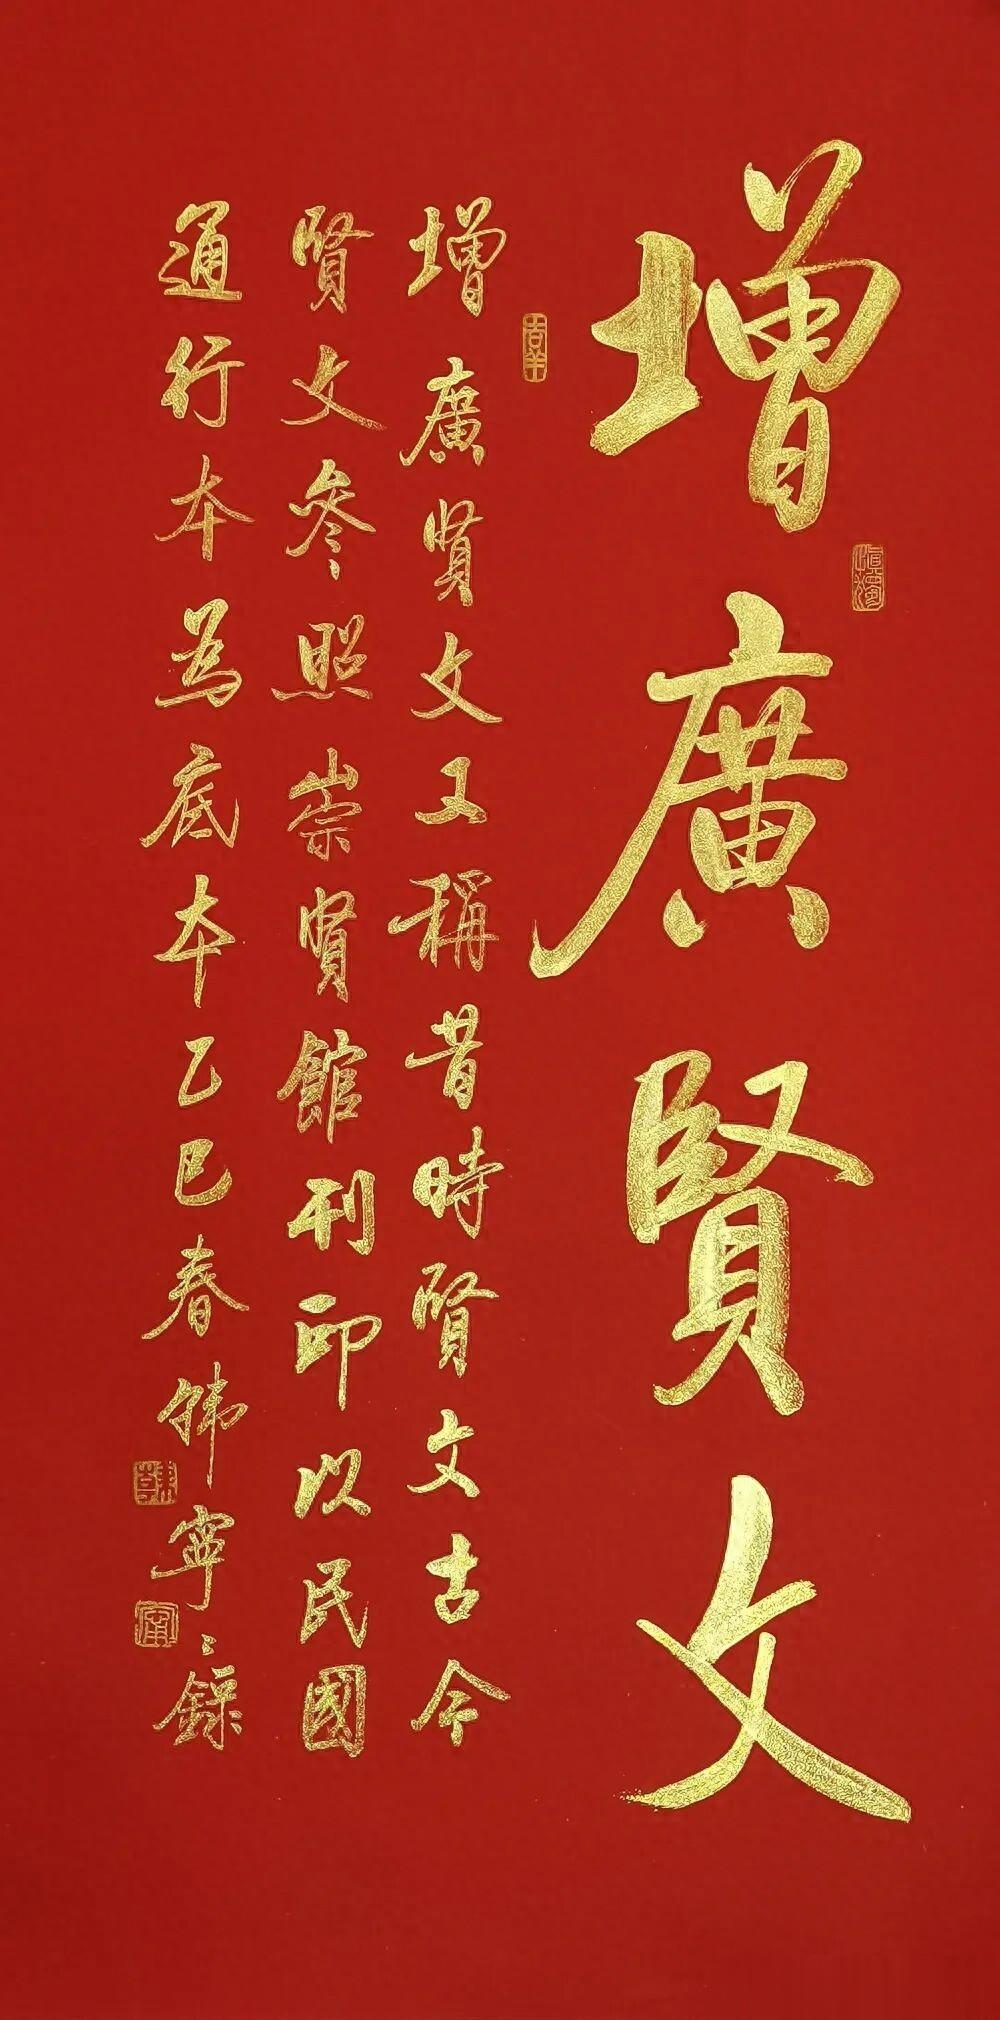 增廣賢文
增廣賢文又稱昔時賢文古今
賢文參照崇賢館刊印以民國
通行本為底本乙巳春韩寧寧錄